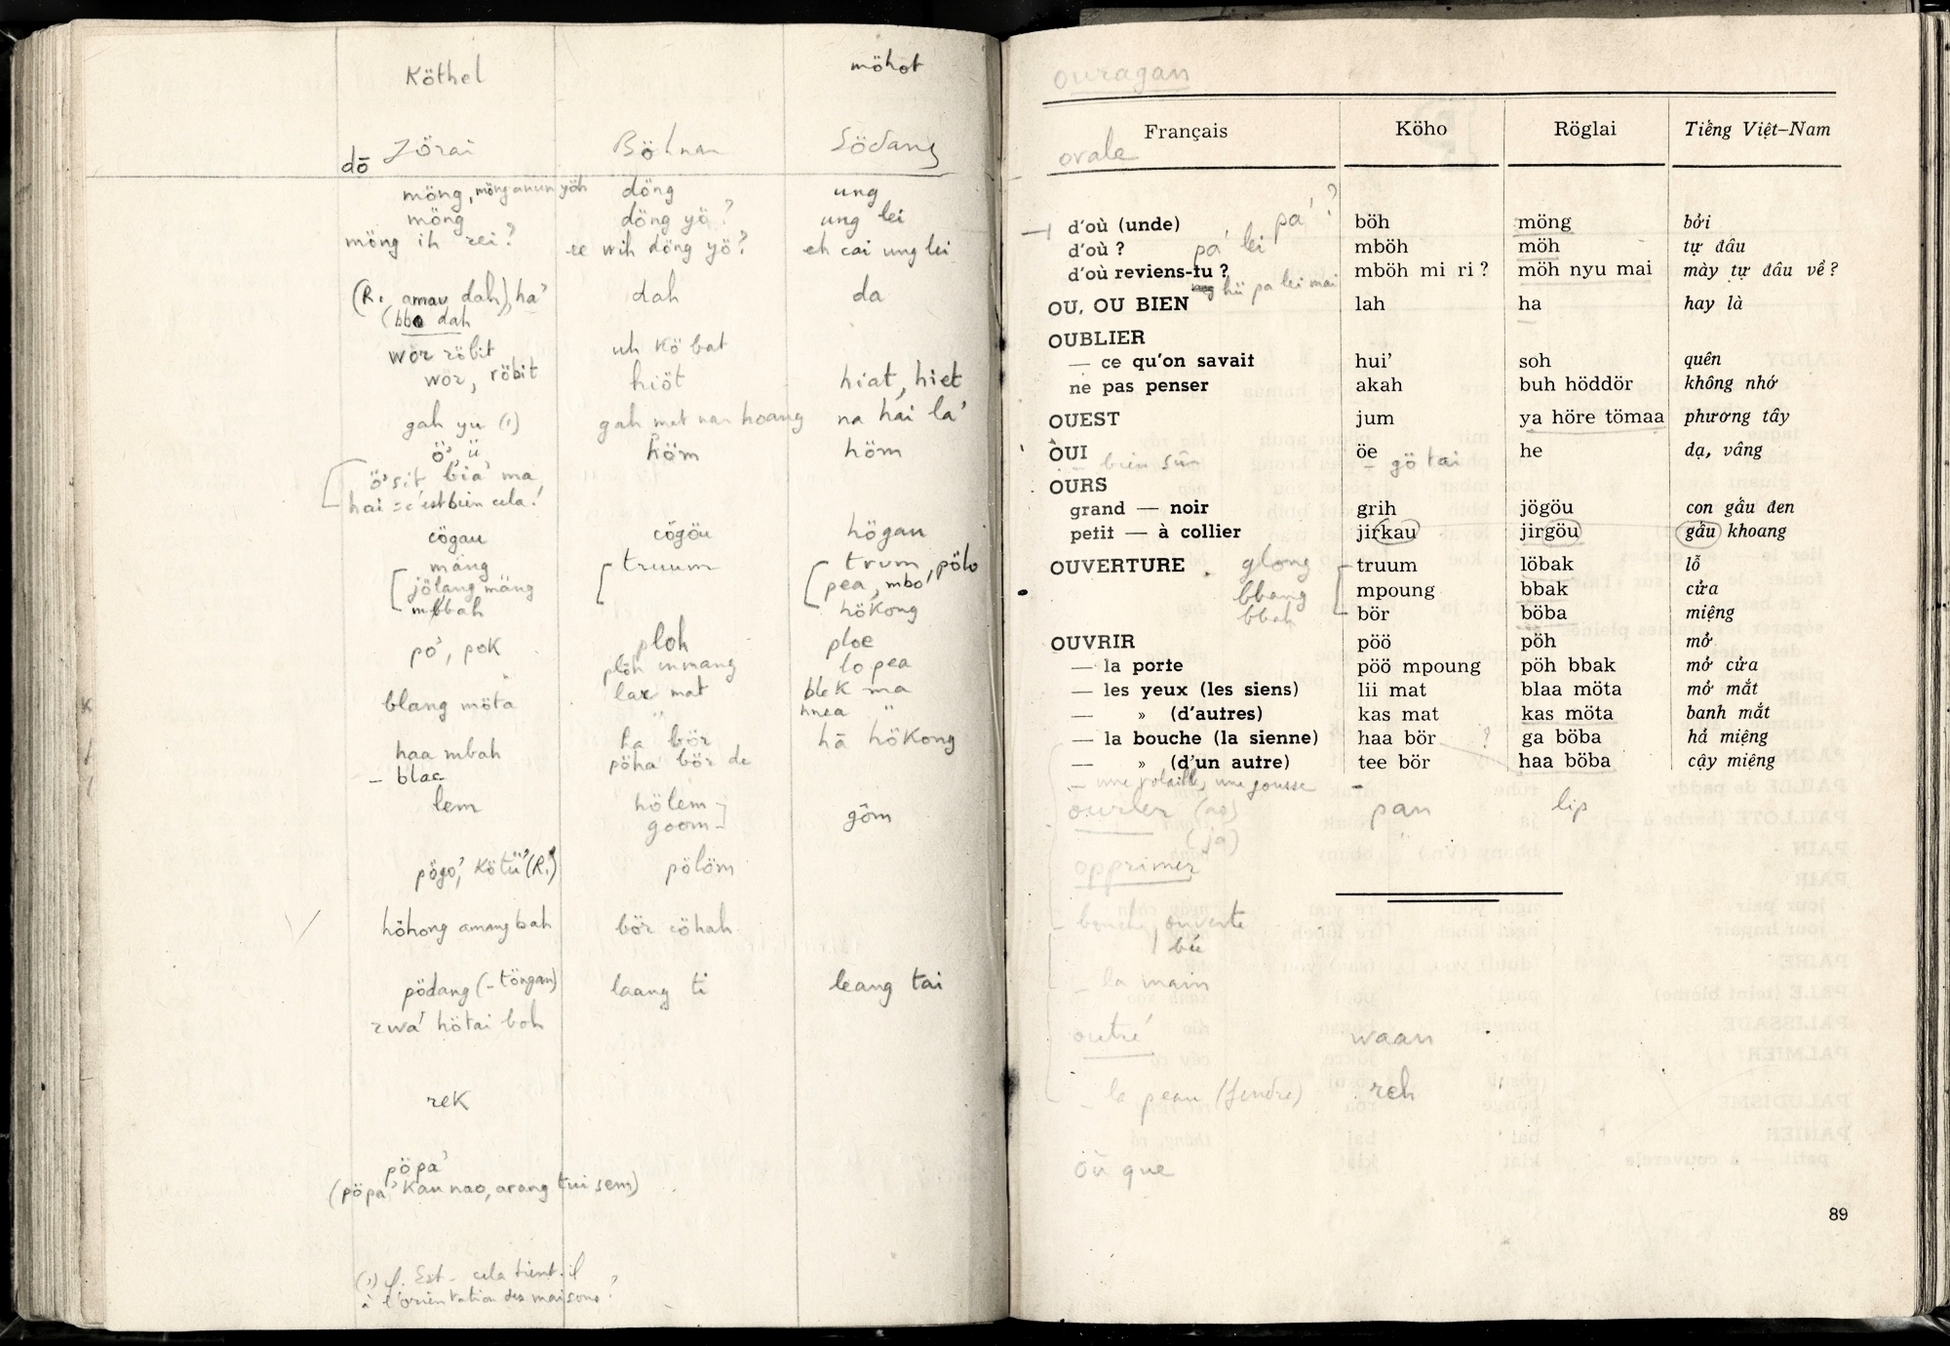 Köthel möhot
dō Jörai Böhnar Södang
möng, möng anun yöh döng ung
möng döng yö? ung lei
möng ih rei? ee wih döng yö? eh cai ung lei
(R. amau dah), ha' dah da
(bbo dah
wör röbit uh kö bat
wör, röbit hiöt hiat, hiet
gah yu (1) gah mat nar hoang na hai la'
ö', ü höm höm
ö' sit bia' ma
hai = c'est bien cela!
cögau cögöu högan
mang truum trum, pölo
jölang mäng pea, mbo'
mbbah hökong
pö', pok ploh ploe
plöh mmang lo pea
blang möta lar mat blek ma
hnea "
haa mbah ha bör hā hökong
– blac pöha bör de
lem hölem göm
goom
pögo', kötü' (R.) pölöm
höhong amang bah bör cöhah
pödang (– töngan) laang ti leang tai
rwa' hötai boh
rek
pöpa'
(pöpa' kau nao, arang tui sem)
(1) cf. Est – cela tient-il
à l'orientation des maisons?
ouragan
Français Köho Röglai Tiếng Việt-Nam
ovale
d'où (unde) pa' ? böh möng bởi
d'où ? pa' lei mböh möh tự đâu
d'où reviens-tu ? mböh mi ri ? möh nyu mai mày tự đâu về ?
hü pa lei mai
OU, OU BIEN lah ha hay là
OUBLIER
— ce qu'on savait hui' soh quên
ne pas penser akah buh höddör không nhớ
OUEST jum ya höre tömaa phương tây
OUI öe he dạ, vâng
– bien sûr – gö tai
OURS
grand — noir grih jögöu con gấu đen
petit — à collier jirkau jirgöu gấu khoang
OUVERTURE glong truum löbak lỗ
bbang mpoung bbak cửa
bbah bör böba miệng
OUVRIR pöö pöh mở
— la porte pöö mpoung pöh bbak mở cửa
— les yeux (les siens) lii mat blaa möta mở mắt
— » (d'autres) kas mat kas möta banh mắt
— la bouche (la sienne) haa bör ? ga böba hả miệng
— » (d'un autre) tee bör haa böba cậy miệng
– une volaille, une gousse –
ourler pan lip
(ja)
opprimer
– bouche ouverte
bü
– la main
outré waan
– la peau (fendre) reh
où que
89